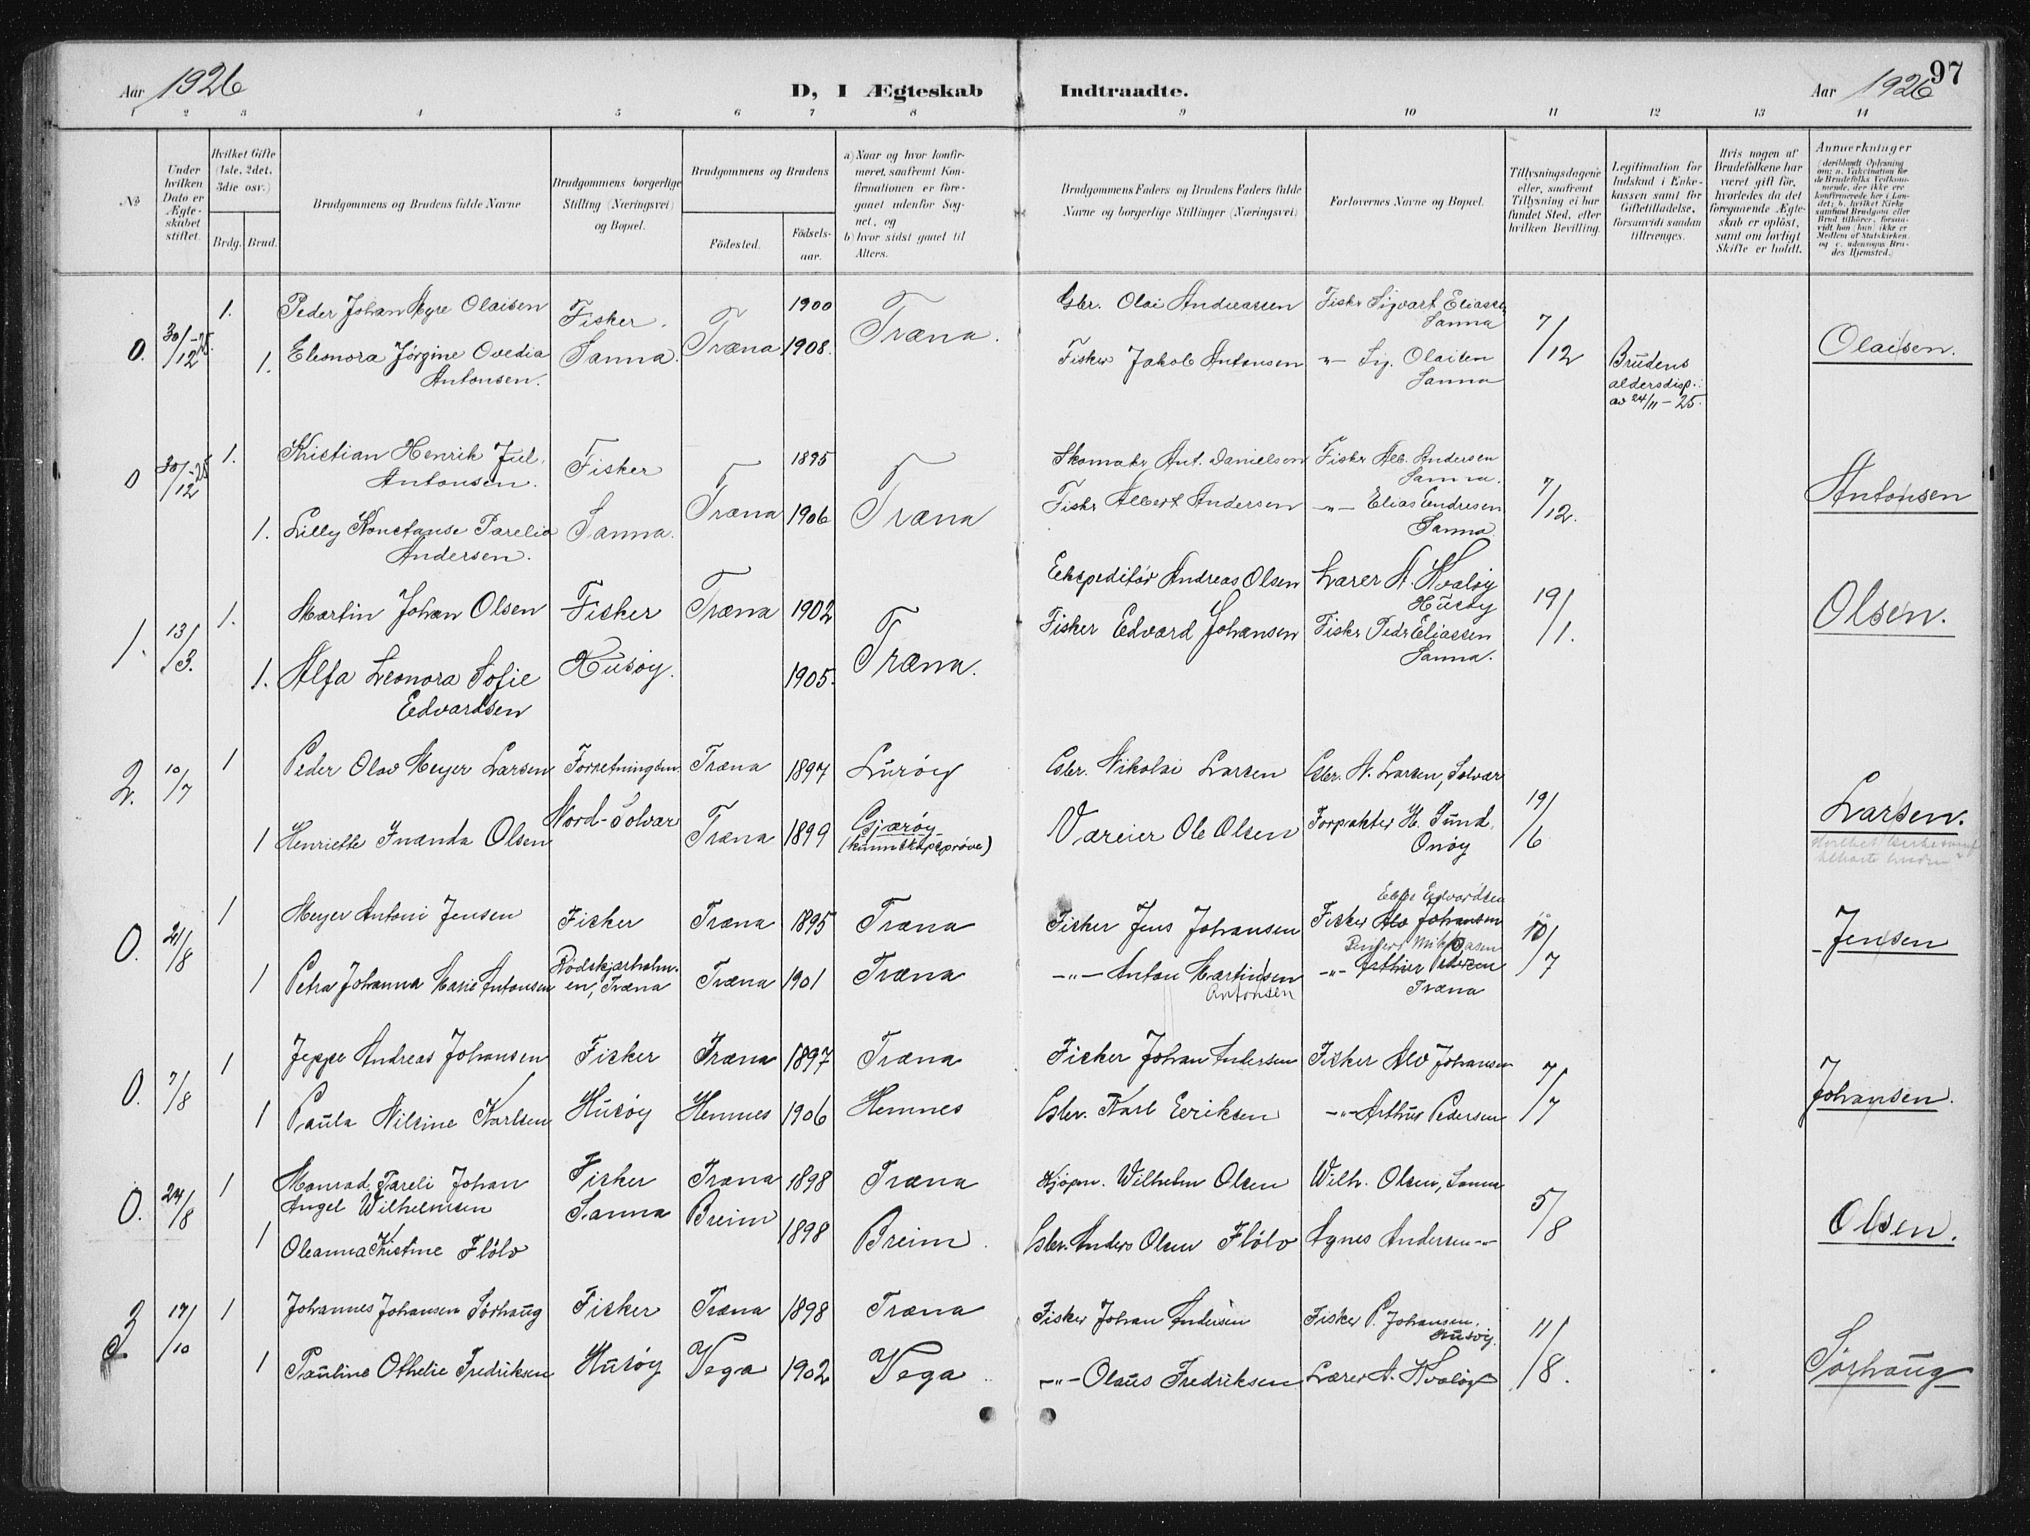 Aar 1926
D, I Ægteskab Indtraadte.
Aar 1926
97
1 2 3 4 5 6 7 8 9 10 11 12 13 14
No
Under hvilken Dato er Ægteskabet stiftet.
Hvilket Gifte (1ste, 2det, 3die osv.)
Brdg. Brud.
Brudgommens og Brudens fulde Navne
Brudgommens borgerlige Stilling (Næringsvei) og Bopæl.
Brudgommens og Brudens
Fødested. Fødselsaar.
a) Naar og hvor konfirmeret, saafremt Konfirmationen er foregaaet udenfor Sognet, og
b) hvor sidst gaaet til Alters.
Brudgommens Faders og Brudens Faders fulde Navne og borgerlige Stillinger (Næringsvei)
Forlovernes Navne og Bopæl.
Tillysningsdagene eller, saafremt Tillysning ei har fundet Sted, efter hvilken Bevilling.
Legitimation for Indskud i Enkekassen samt for Giftetilladelse, forsaavidt saadan tiltrænges.
Hvis nogen af Brudefolkene har været gift før, hvorledes da det foregaaende Ægteskab er opløst, samt om lovligt Skifte er holdt.
Anmerkninger
0. 30/12-25. 1. Peder Johan Myre Olaisen Fisker. 1900 Træna. Gbr. Olai Andreassen Fiskr Sigvart Eliassen Sanna 7/12 Olaisen.
1. Eleonora Jörgine Ovedia Antonsen. Sanna. Træna 1908. Fisker Jakob Antonsen -"- Sig. Olaisen Sanna Brudens aldersdisp. av 24/11-25.
0 30/12-25 1. Kristian Henrik Juel Antonsen. Fisker 1895 Træna Skomakr Ant. Danielsen Fiskr Alb. Andersen Sanna. 7/12. Antonsen
1. Lilly Konstanse Parelia Andersen. Sanna. Træna 1906 Fiskr Albert Andersen -"- Elias Endresen Sanna.
1. 13/3. 1. Martin Johan Olsen Fisker Træna 1902 Træna. Ekspeditör Andreas Olsen Lærer A. Hvalöy Husöy 19/1. Olsen.
1. Alfa Leonora Sofie Edvardsen Husöy. 1905. Fisker Edvard Johansen Fiskr Pedr Eliassen Sanna.
2. 10/7 1 Peder Olav Meyer Larsen Forretningsm. Træna 1897 Luröy Gbr. Nikolai Larsen Gbr. N. Larsen, Solvær 19/6 Larsen.
1 Henriette Inanda Olsen Nord-Solvær Træna 1899 Gjæröy (kunnskapsprøve) Væreier Ole Olsen Forpakter H. Sund, Onöy
0. 21/8 1 Meyer Antoni Jensen Fisker Træna 1895 Træna Fisker Jens Johansen Fisker Alv Johansen Edvardsen 10/7 Jensen
1 Petra Johanna Marie Antonsen Rödskjærholmen, Træna Træna 1901 Træna -"- Anton Martinsen Antonsen -"- Arthur Pedersen Træna
0. 7/8 1 Jeppe Andreas Johansen Fisker Træna 1897 Træna Fisker Johan Andersen Fisker Alv Johansen 7/7 Johansen.
1 Paula Nilsine Karlsen Husöy Hemnes 1906 Hemnes Gbr. Karl Eriksen -"- Arthur Pedersen
0. 24/8 1 Monrad Pareli Johan Angel Wilhelmsen Fisker Træna 1898 Træna Kjöpm. Wilhelm Olsen Wilh. Olsen, Sanna 5/8 Olsen.
1 Oleanna Kristine Flölo Sanna Breim 1898 Breim. Gbr. Anders Olsen Flölo Agnes Andersen -"-
3 17/10 1 Johannes Johansen Sörhaug Fisker Træna 1898 Træna Fisker Johan Andersen Fisker P. Johansen, Husöy. 11/8. Sörhaug
1 Pauline Othelie Fredriksen Husöy Vega 1902 Vega -"- Olaus Fredriksen Lærer A. Hvalöy